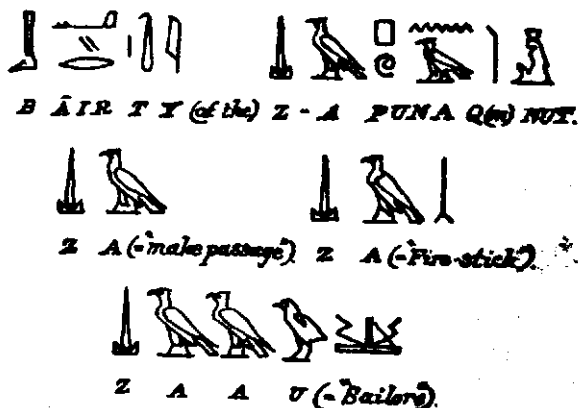 B ĀIR T Y (of the) Z - A PUNA Q(m) NUT.
Z A (="make passage"). Z A (="Fire-stick").
Z A A U (="Bailers").